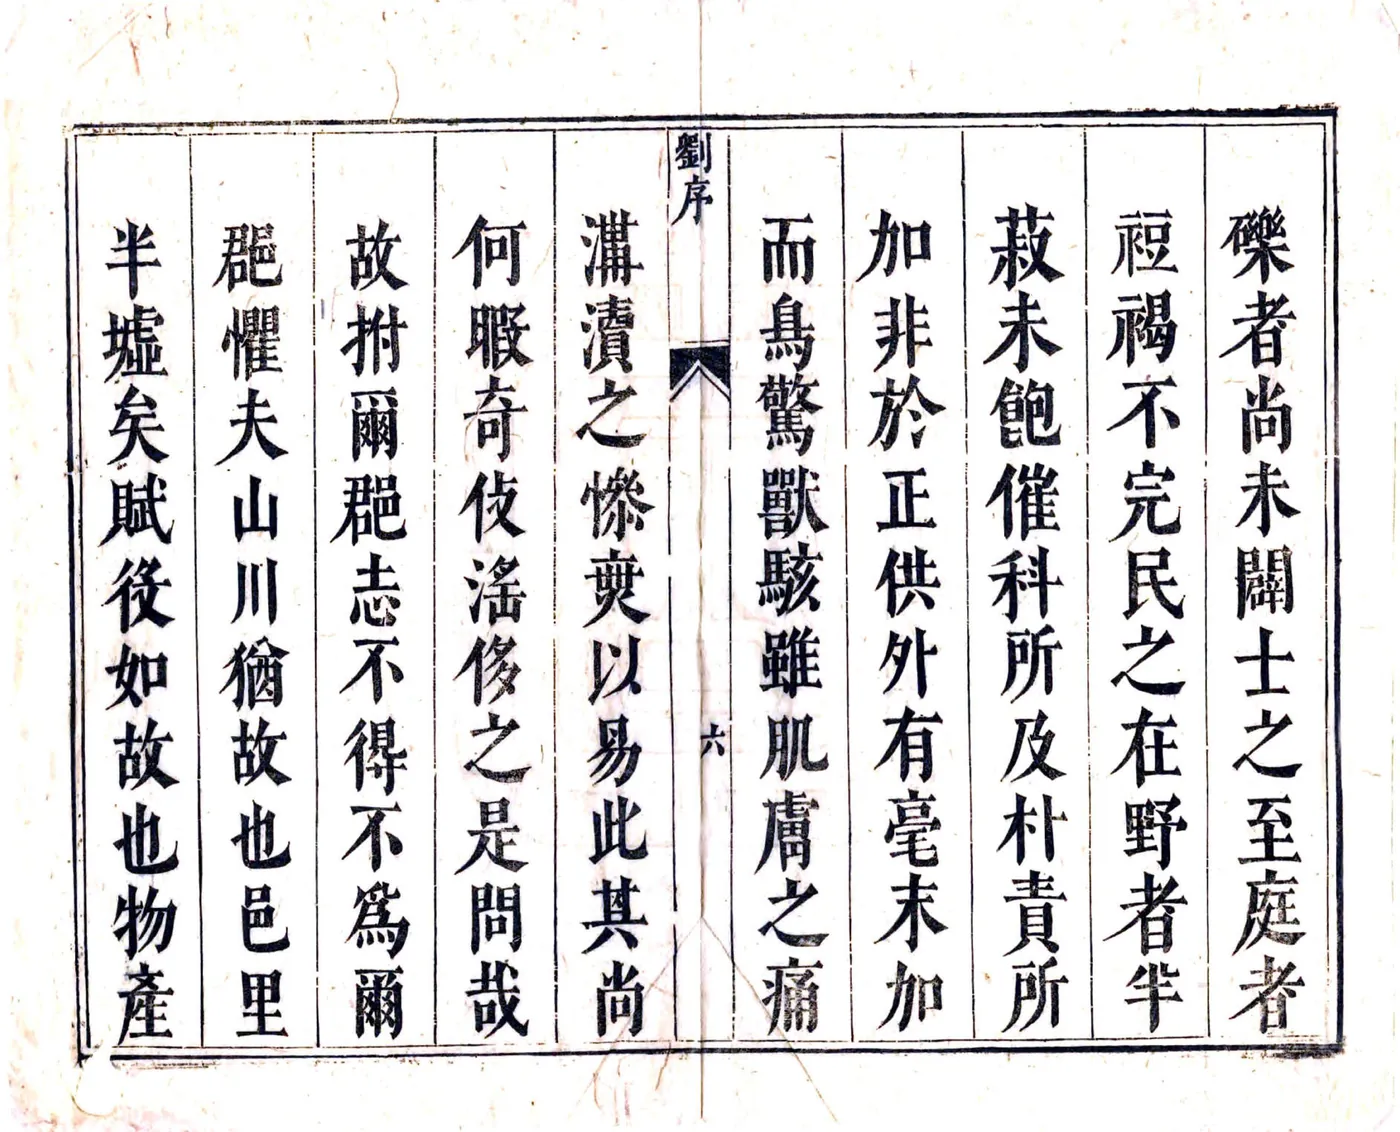 礫者尚未闢士之至庭者
裋褐不完民之在野者半
菽未飽催科所及朴責所
加非於正供外有毫末加
而鳥驚獸駭雖肌膚之痛
劉序
六
溝瀆之慘莫以易此其尚
何暇奇伎滛侈之是問哉
故拊爾郡志不得不爲爾
郡懼夫山川猶故也邑里
半墟矣賦役如故也物產